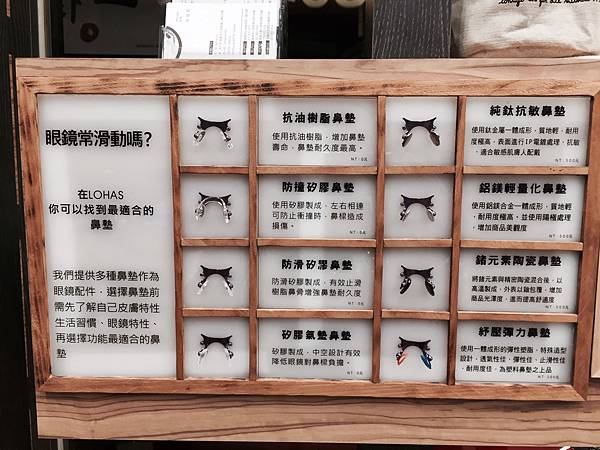 眼鏡常滑動嗎?
在LOHAS
你可以找到最適合的
鼻墊
我們提供多種鼻墊作為
眼鏡配件，選擇鼻墊前
需先了解自己皮膚特性
生活習慣、眼鏡特性、
再選擇功能最適合的鼻
墊
抗油樹脂鼻墊
使用抗油樹脂，增加鼻墊
壽命，鼻墊耐久度最高。
NT:0元
防撞矽膠鼻墊
使用矽膠製成，左右相連
可防止衝撞時，鼻樑造成
損傷。
NT:0元
防滑矽膠鼻墊
防滑矽膠製成，有效止滑
樹脂鼻骨增強鼻墊耐久度
NT:0元
矽膠氣墊鼻墊
矽膠製成，中空設計有效
降低眼鏡對鼻樑負擔。
NT:0元
純鈦抗敏鼻墊
使用鈦金屬一體成形，質地輕，耐用
度極高，表面進行IP電鍍處理，抗敏
，適合敏感肌膚人配戴
NT:500元
鋁鎂輕量化鼻墊
使用鋁鎂合金一體成形，質地輕
，耐用度極高，並使用陽極處理
，增加商品美觀度
NT:500元
鍺元素陶瓷鼻墊
將鍺元素與精密陶瓷混合後，以
高溫製成，外表以釉包覆，增加
商品光澤度，進而提高舒適度
NT:500元
紓壓彈力鼻墊
使用一體成形的彈性塑脂，特殊造型
設計，透氣性佳，彈性佳、止滑性佳
，耐用度佳，為塑料鼻墊之上品
NT:300元